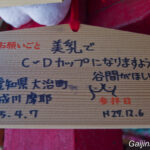 お願いごと
美乳で
C・Dカップになりますように
谷間がほしい
愛知県大治町
成川 摩耶
参拝日
H27.12.6
5.4.7
Gaijin